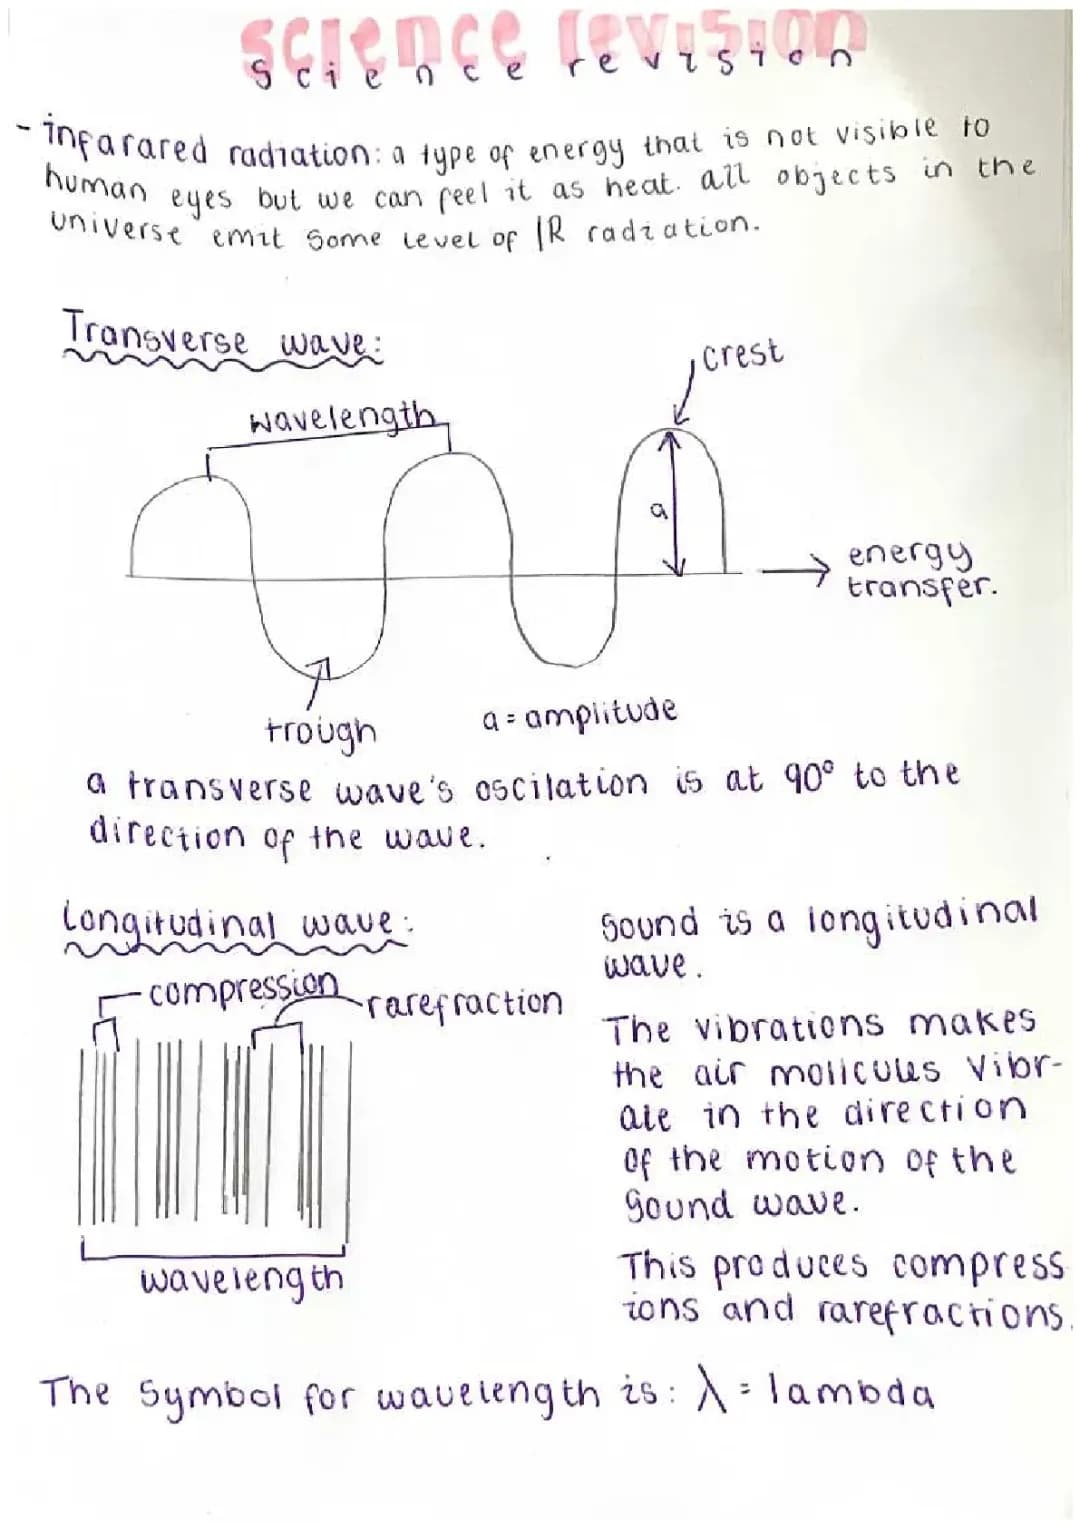 science revision
science revision
- infarared radiation: a type of energy that is not visible to
human eyes but we can feel it as heat. all objects in the
universe emit some level of IR radiation.
Transverse wave:
crest
wavelength
a
energy
transfer.
trough
a = amplitude
a transverse wave's oscilation is at 90° to the
direction of the wave.
Longitudinal wave:
compression
rarefraction
wavelength
Sound is a longitudinal
wave.
The vibrations makes
the air molicules vibr-
ate in the direction
of the motion of the
sound wave.
This produces compress
ions and rarefractions.
The symbol for wavelength is: λ = lambda